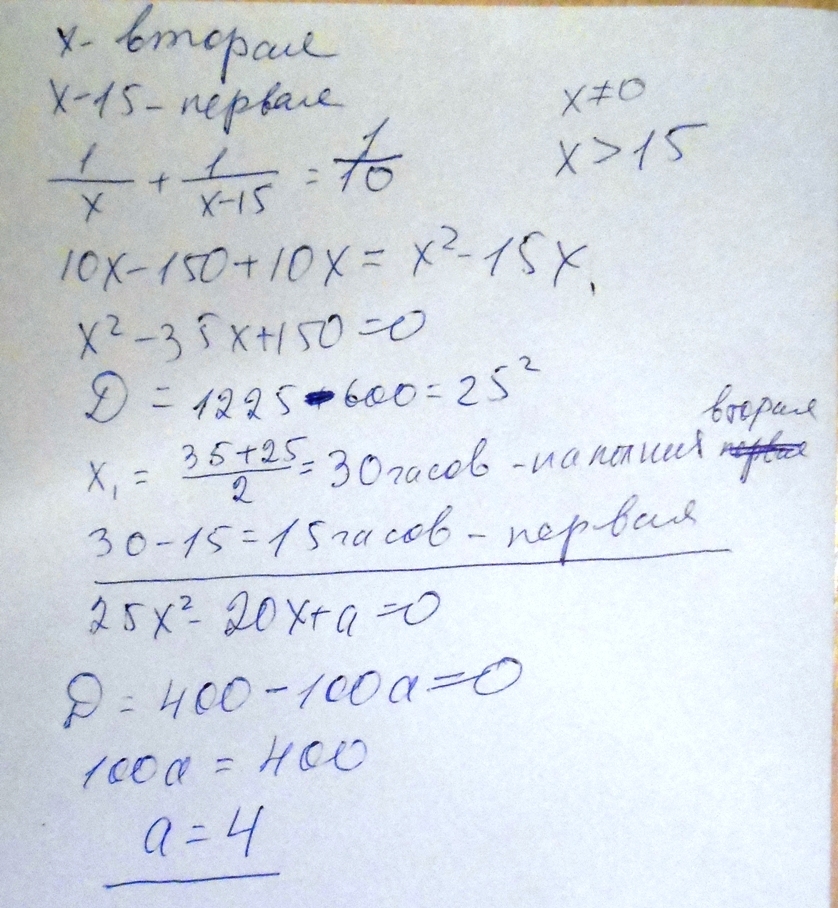 x - вторая
x-15 - первая
x≠0
x>15
1/x + 1/(x-15) = 1/10
10x-150+10x = x²-15x
x²-35x+150=0
D = 1225-600=25²
x₁ = (35+25)/2 = 30 часов - вторая
30-15=15 часов - первая
25x²-20x+a=0
D = 400-100a=0
100a = 400
a=4